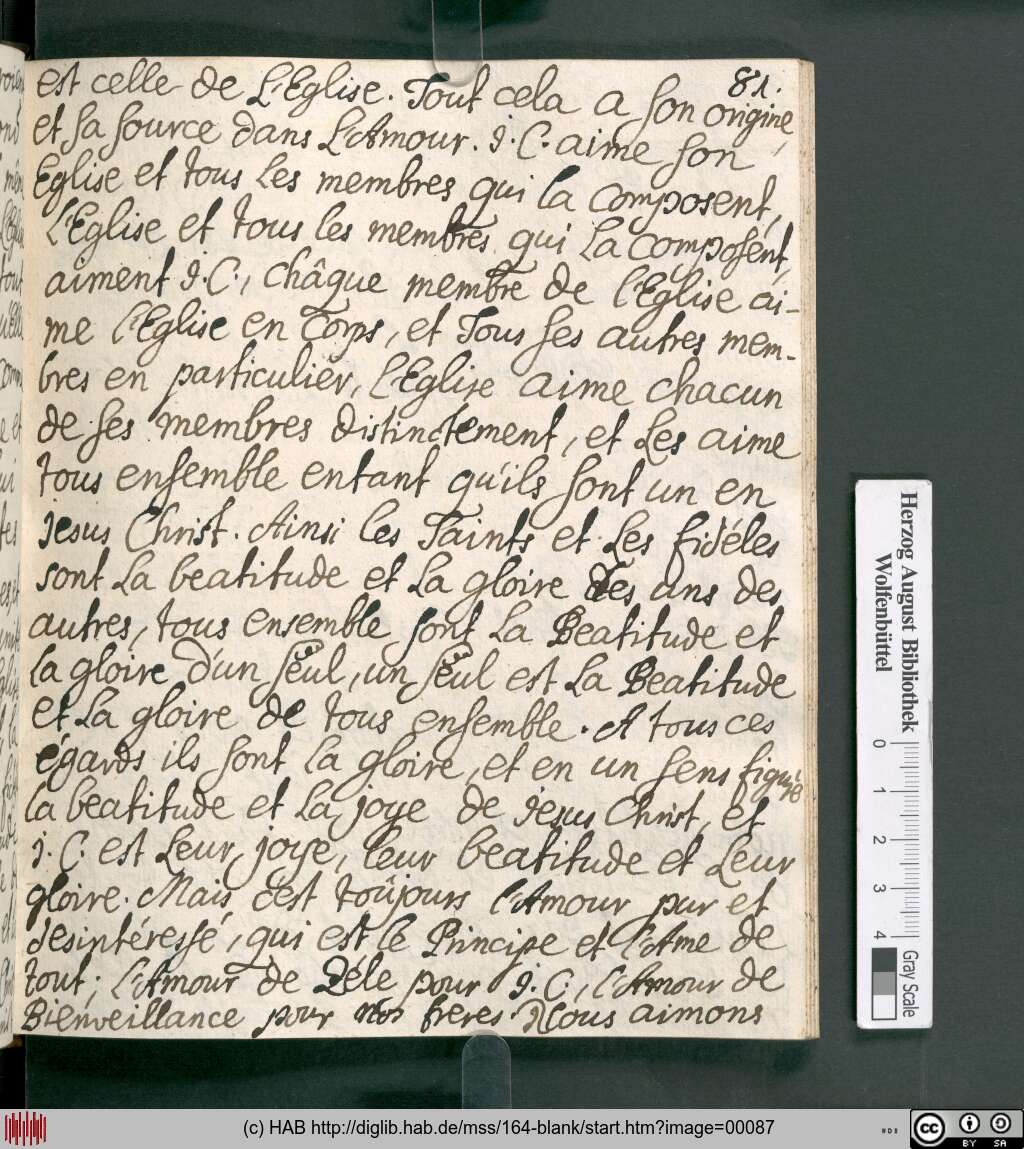 81.
est celle de L'Eglise. Tout cela a son origine,
et sa source dans L'Amour. J. C. aime son
Eglise et tous Les membres qui la composent,
l'Eglise et tous les membres qui La composent,
aiment J. C., châque membre de l'Eglise ai-
me l'Eglise en Corps, et Tous ses autres mem-
bres en particulier, l'Eglise aime chacun
de ses membres distinctement, et Les aime
tous ensemble entant qu'ils sont un en
Jesus Christ. Ainsi les Saints et Les fidéles
sont La beatitude et La gloire des uns des
autres, tous ensemble sont La Beatitude et
la gloire d'un seul, un seul est La Beatitude
et La gloire de tous ensemble. A tous ces
égards ils sont la gloire, et en un sens figuré
la beatitude et La joye de Jesus Christ, et
J. C. est Leur joye, leur beatitude et Leur
gloire. Mais c'est toûjours l'Amour pur et
desintéressé, qui est le Principe et l'Ame de
tout; l'Amour de Zéle pour J. C., l'Amour de
Bienveillance pour nos freres. Nous aimons
Herzog August Bibliothek
Wolfenbüttel
0 1 2 3 4
Gray Scale
(c) HAB http://diglib.hab.de/mss/164-blank/start.htm?image=00087
cc BY SA